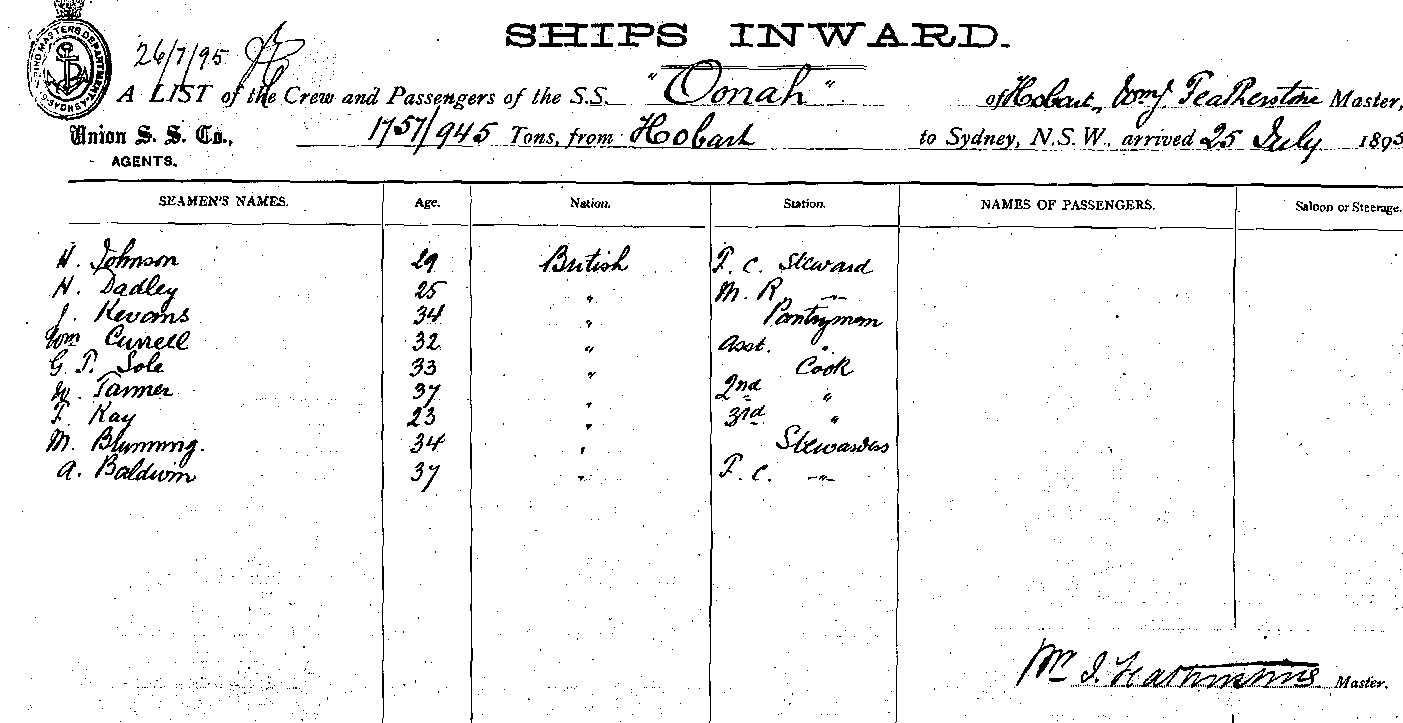 26/7/95
SHIPS INWARD.
A LIST of the Crew and Passengers of the S.S. "Oonah" of Hobart, Wm J. Featherstone Master,
Union S. S. Co., AGENTS. 1757/945 Tons, from Hobart to Sydney, N.S.W., arrived 25 July 1895
SEAMEN'S NAMES. Age. Nation. Station. NAMES OF PASSENGERS. Saloon or Steerage.
H. Johnson 29 British F. C. Steward
H. Dadley 25 " M. R "
J. Kevans 34 " Pantryman
Wm Currell 32 " Asst. "
G. T. Sole 33 " Cook
W. Tanner 37 " 2nd "
F. Kay 23 " 3rd "
M. 34 " Stewardess
A. Baldwin 37 " F. C. "
Wm J. Featherstone Master.